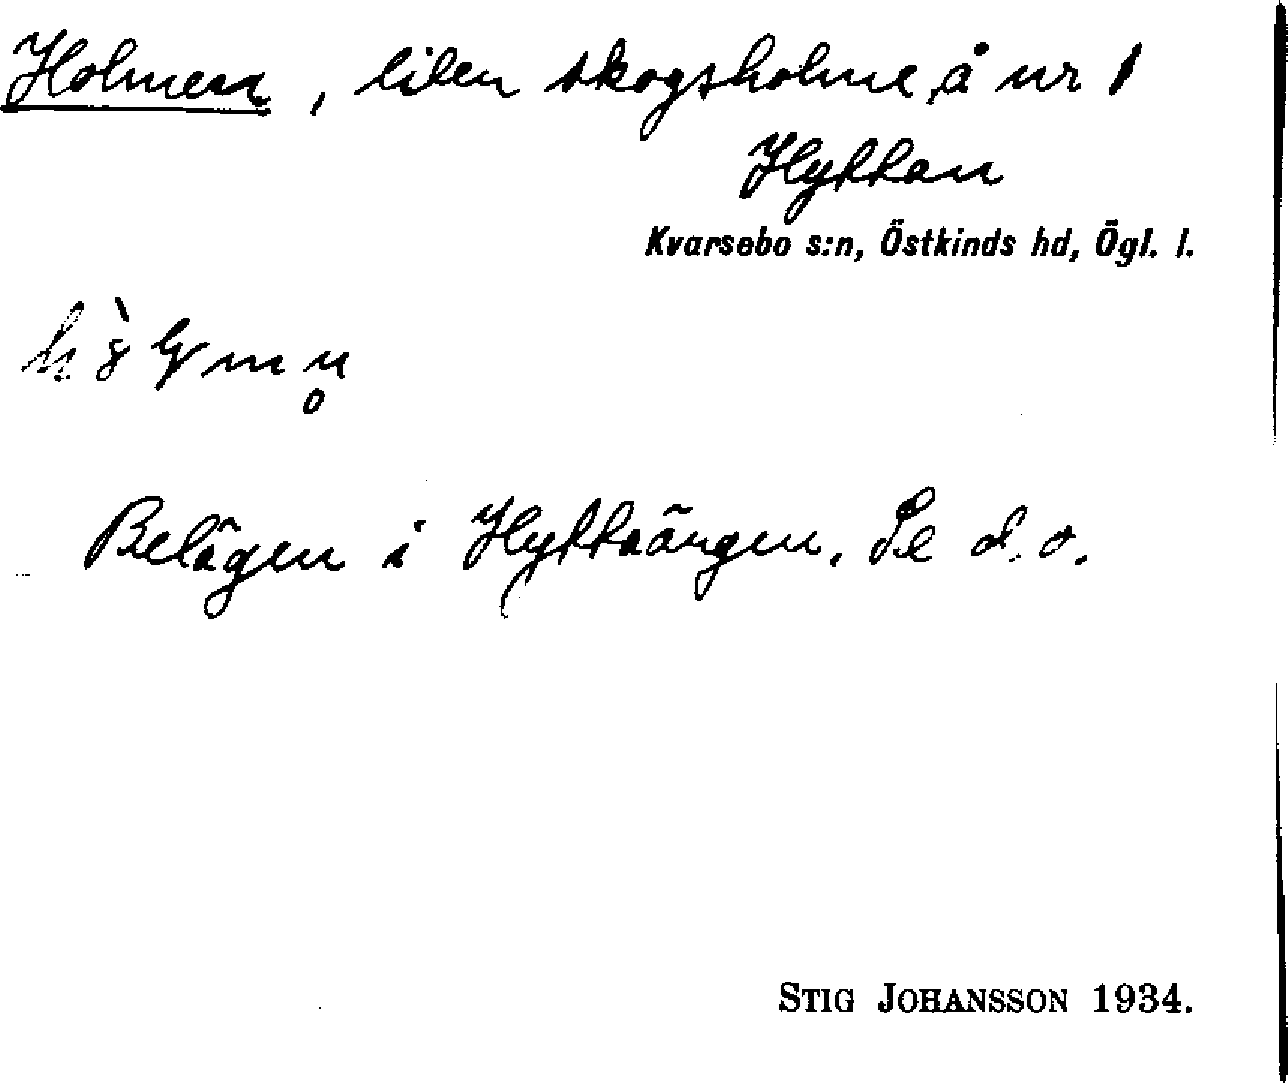 Holmen, liten skogsholme, å nr 1
Hyttan
Kvarsebo s:n, Östkinds hd, Ögl. l.
Belägen i Hyttängen. Se d.o.
STIG JOHANSSON 1934.